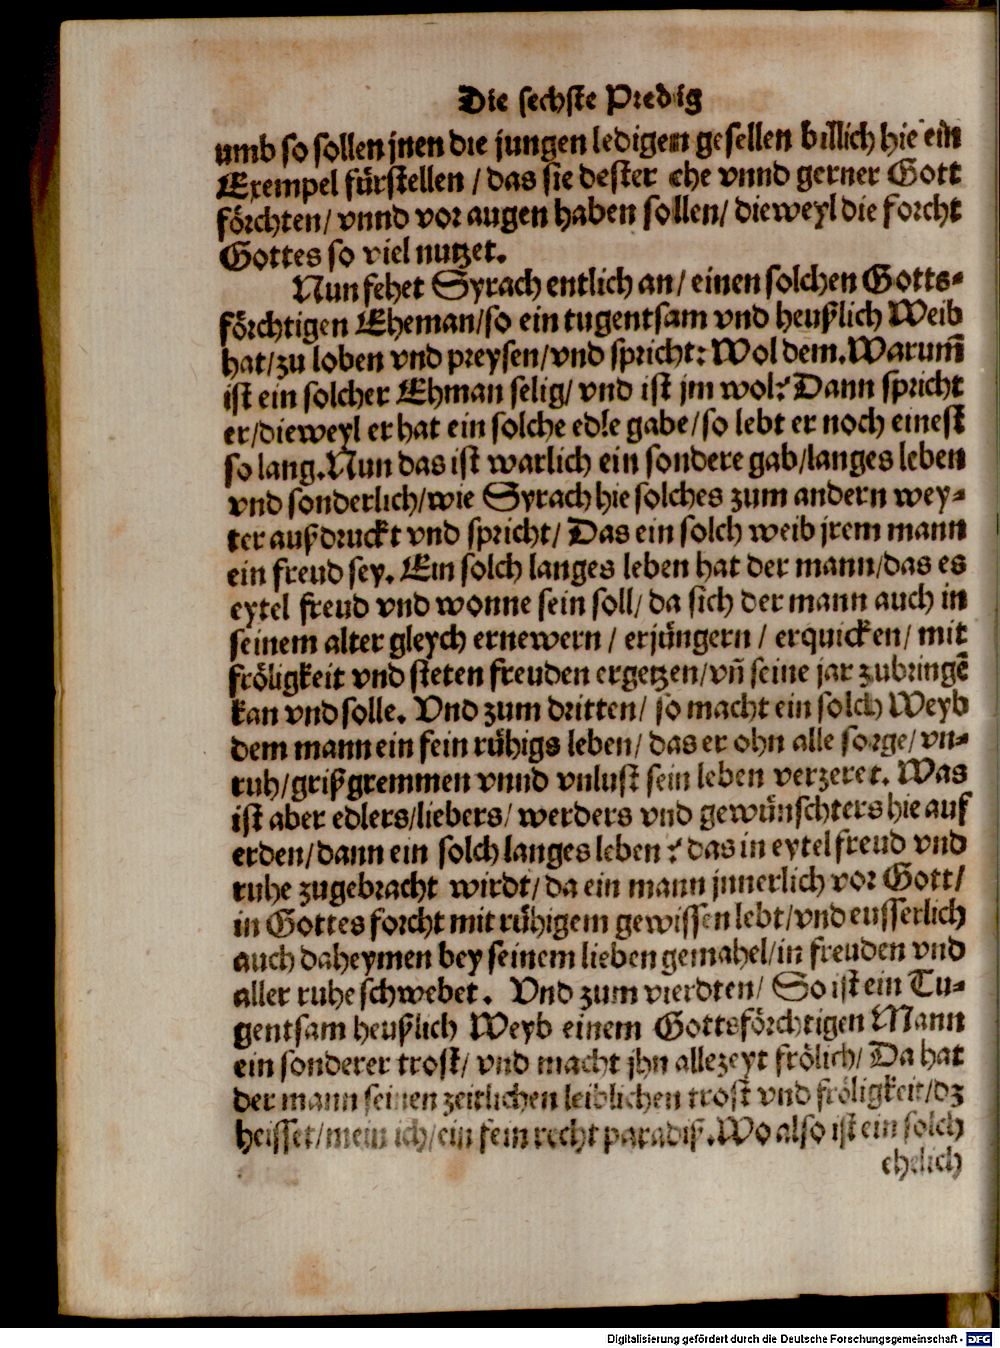 Die sechste Predig
umb so sollen jnen die jungen ledigen gesellen billich hie ein
Exempel fürstellen / das sie dester ehe vnnd gerner Gott
förchten/ vnnd vor augen haben sollen/ dieweyl die forcht
Gottes so viel nutzet.
Nun fehet Syrach entlich an/ einen solchen Gotts-
förchtigen Eheman/so ein tugentsam vnd heußlich Weib
hat/zu loben vnd preysen/vnd spricht: Wol dem. Warum̃
ist ein solcher Ehman selig/ vnd ist jm wol? Dann spricht
er/dieweyl er hat ein solche edle gabe/so lebt er noch einest
so lang. Nun das ist warlich ein sondere gab/langes leben
vnd sonderlich/wie Syrach hie solches zum andern wey-
ter außdruckt vnd spricht/ Das ein solch weib jrem mann
ein freud sey. Ein solch langes leben hat der mann/das es
eytel freud vnd wonne sein soll/ da sich der mann auch in
seinem alter gleych ernewern / erjüngern / erquicken/ mit
fröligkeit vnd steten freuden ergetzen/vñ seine jar zubringẽ
kan vnd solle. Vnd zum dritten/ so macht ein solch Weyb
dem mann ein fein rühigs leben/ das er ohn alle sorge/ vn-
ruh/grißgremmen vnnd vnlust sein leben verzeret. Was
ist aber edlers/liebers/ werders vnd gewünschters hie auf
erden/dann ein solch langes leben? das in eytel freud vnd
ruhe zugebracht wirdt/ da ein mann jnnerlich vor Gott/
in Gottes forcht mit rühigem gewissen lebt/vnd eusserlich
auch daheymen bey seinem lieben gemahel/in freuden vnd
aller ruhe schwebet. Vnd zum vierdten/ So ist ein Tu-
gentsam heußlich Weyb einem Gottsförchtigen Mann
ein sonderer trost/ vnd macht jhn allezeyt frölich/ Da hat
der mann seinen zeitlichen leiblichen trost vnd fröligkeit/dz
heisset/mein ich/ein fein recht paradiß. Wo also ist ein solch
ehrlich
Digitalisierung gefördert durch die Deutsche Forschungsgemeinschaft - DFG